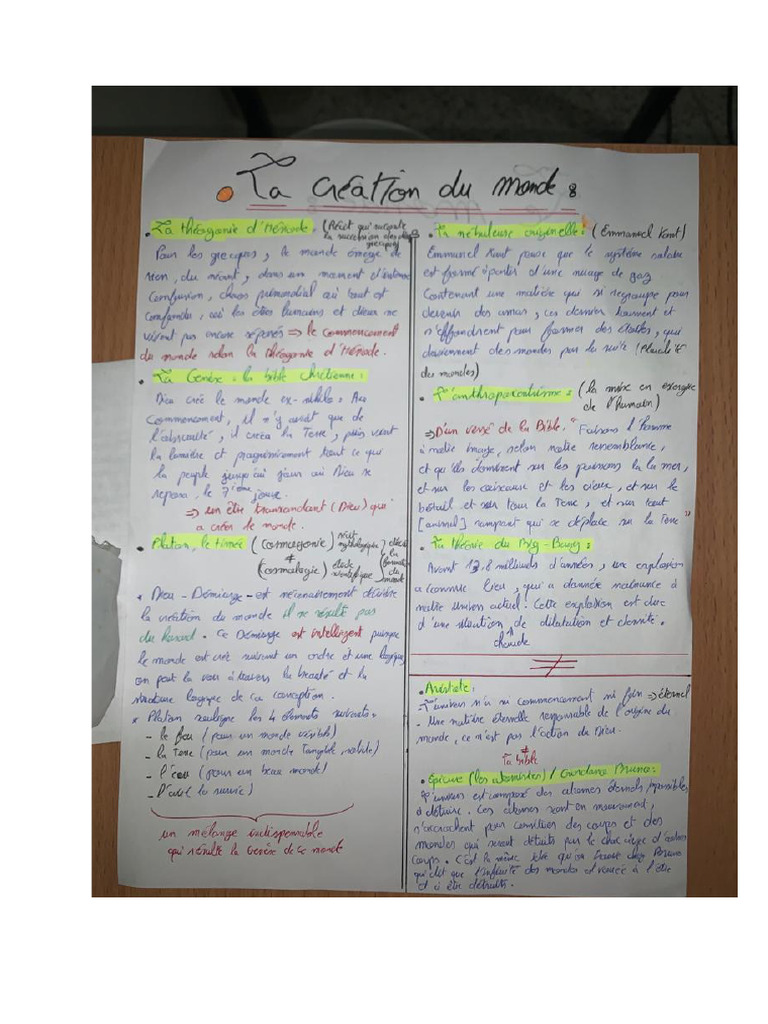 La création du monde :
• La théogonie d'Hésiode : (Récit qui raconte
la succession des dieux
grecques)
Pour les grecques, le monde émerge de
rien, du néant, dans un moment d'intense
confusion, chaos primordial où tout est
confondu, où les êtres humains et dieux ne
vivent pas encore séparés => le commencement
du monde selon la théogonie d'Hésiode.
• La Genèse : la bible chrétienne :
Dieu crée le monde ex-nihilo : Au
commencement, il n'y avait que de
l'obscurité, il créa la Terre, puis vient
la lumière et progressivement tout ce qui
la peuple jusqu'au jour où Dieu se
reposa, le 7ième jour.
=> un être transcendant (Dieu) qui
a créer le monde.
• Platon, le timée (cosmogonie) récit
mythologique
≠
(cosmologie) étude
scientifique
décrit
la
formation
du
monde
• Dieu - Démiurge - est nécessairement derrière
la création du monde il ne résulte pas
du hasard. Ce Démiurge est intelligent puisque
le monde est crée suivant un ordre et une logique,
on peut le voir à travers la beauté et la
structure logique de sa conception.
• Platon souligne les 4 éléments suivants :
- le feu (pour un monde visible)
- la Terre (pour un monde tangible, solide)
- l'eau (pour un beau monde)
- l'air (la survie)
un mélange indispensable
qui résulte la Genèse de ce monde
• La nébuleuse originelle : (Emmanuel Kant)
Emmanuel Kant pense que le système solaire
est formé à partir d'une nuage de gaz
contenant une matière qui se regroupe pour
devenir des amas, ces dernier tournent et
s'effondrent pour former des étoiles, qui
deviennent des mondes par la suite (Pluralité
des mondes)
• L'anthropocentrisme : (la mise en exergue
de l'humain)
=> D'un versé de la Bible. "Faisons l'homme
à notre image, selon notre ressemblance,
et qu'ils dominent sur les poissons de la mer,
et sur les oiseaux et les cieux, et sur le
bétail et sur tous la Terre, et sur tout
[animal] rampant qui se déplace sur la Terre"
• La théorie du Big-Bang :
Avant 13.8 milliards d'années, une explosion
a connue lieu, qui a donnée naissance à
notre univers actuel. Cette explosion est due
d'une situation de dilatation et densité.
chaude
≠
• Aristote :
- L'univers n'a ni commencement ni fin => éternel
- Une matière éternelle responsable de l'origine du
monde, ce n'est pas l'action du Dieu.
≠
la bible
• Epicure (les atomistes) / Giordano Bruno :
L'univers est composé des atomes éternels impossibles
à détruire. Ces atomes sont en mouvement,
s'accrochent pour constituer des corps et des
mondes qui seront détruits par le choc d'autres
corps. C'est la même idée qu'on trouve chez Bruno
qui dit que l'infinité des mondes est vouée à l'être
et à être détruits.